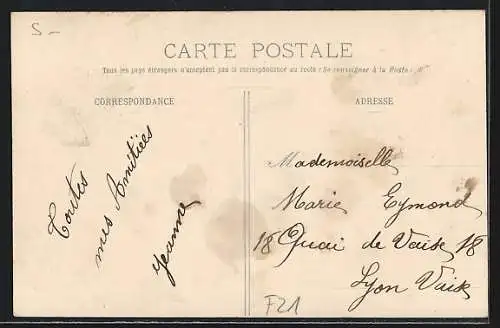 5-
CARTE POSTALE
Tous les pays étrangers n'acceptent pas la correspondance au recto (Se renseigner à la Poste)
CORRESPONDANCE
ADRESSE
Toutes
mes Amitiées
Jeanne
Mademoiselle
Marie Eymond
18 Quai de Vaise 18
Lyon Vaise
F21